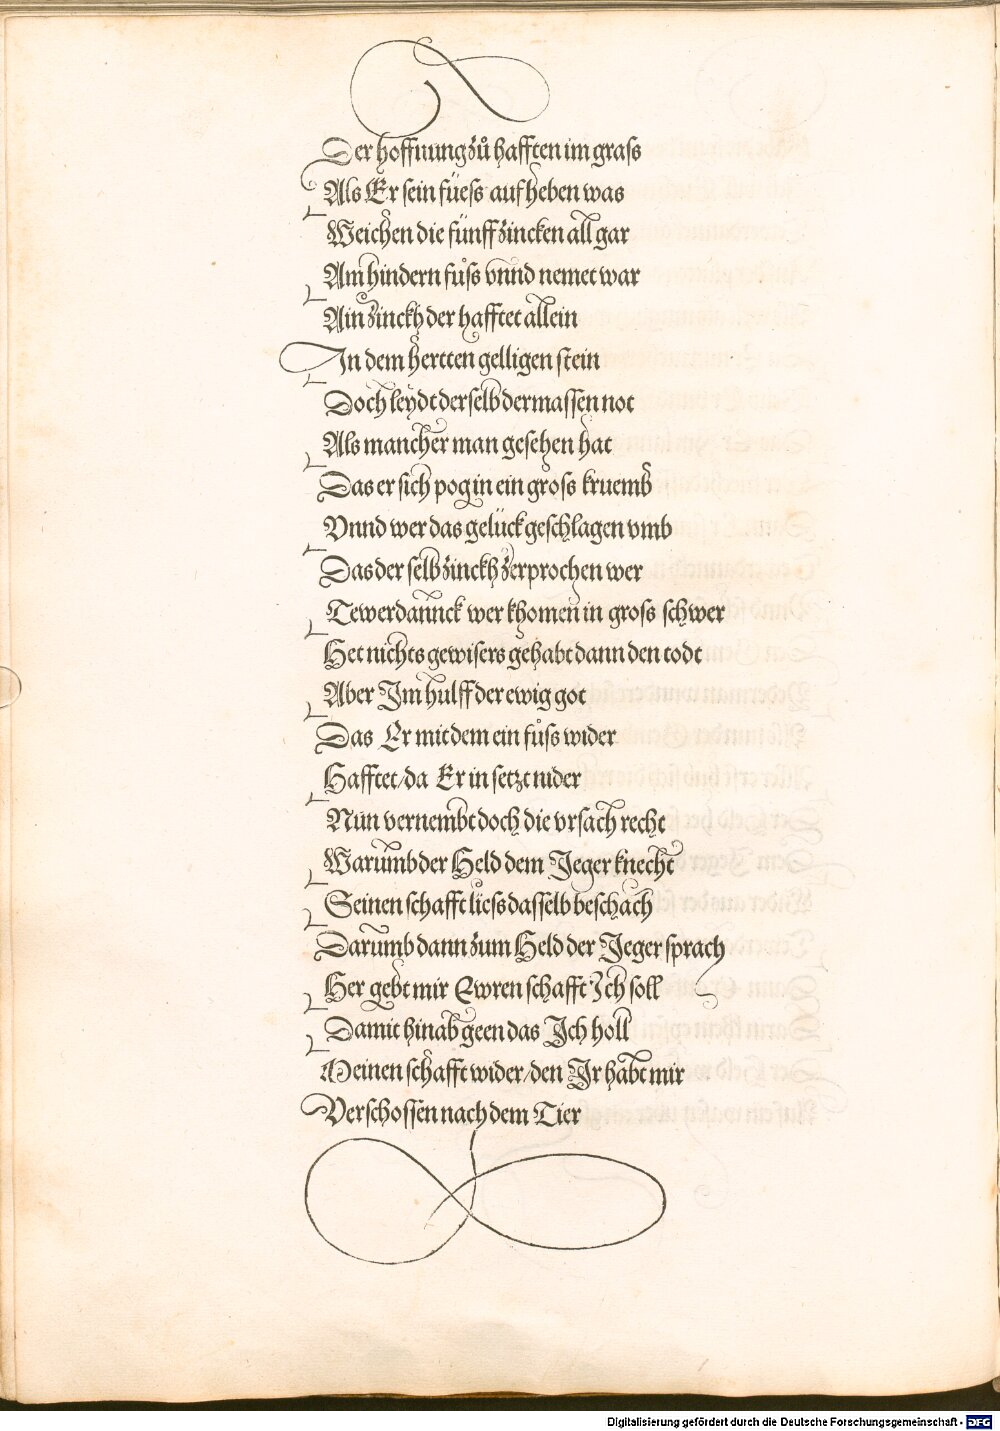 Der hoffnung zů hafften im grass
Als Er sein füess aufheben was
Weichen die fünff zincken all gar
Am hindern fůss vnnd nemet war
Ain zinckh der hafftet allein
In dem hertten gelligen stein
Doch leydt derselb dermassen not
Als mancher man gesehen hat
Das er sich pog in ein gross kruemb
Vnnd wer das gelück geschlagen vmb
Das der selb zinckh zerprochen wer
Tewerdannck wer khomen in gross schwer
Het nichts gewisers gehabt dann den todt
Aber Im hulff der ewig got
Das Er mit dem ein fůss wider
Hafftet/da Er in setzt nider
Nun vernembt doch die vrsach recht
Warumb der Held dem Jeger knecht
Seinen schafft liess dasselb beschach
Darumb dann zum Held der Jeger sprach
Her gebt mir Ewren schafft Ich soll
Damit hinab geen das Ich holl
Meinen schafft wider/den Ir habt mir
Verschossen nach dem Tier
Digitalisierung gefördert durch die Deutsche Forschungsgemeinschaft - DFG